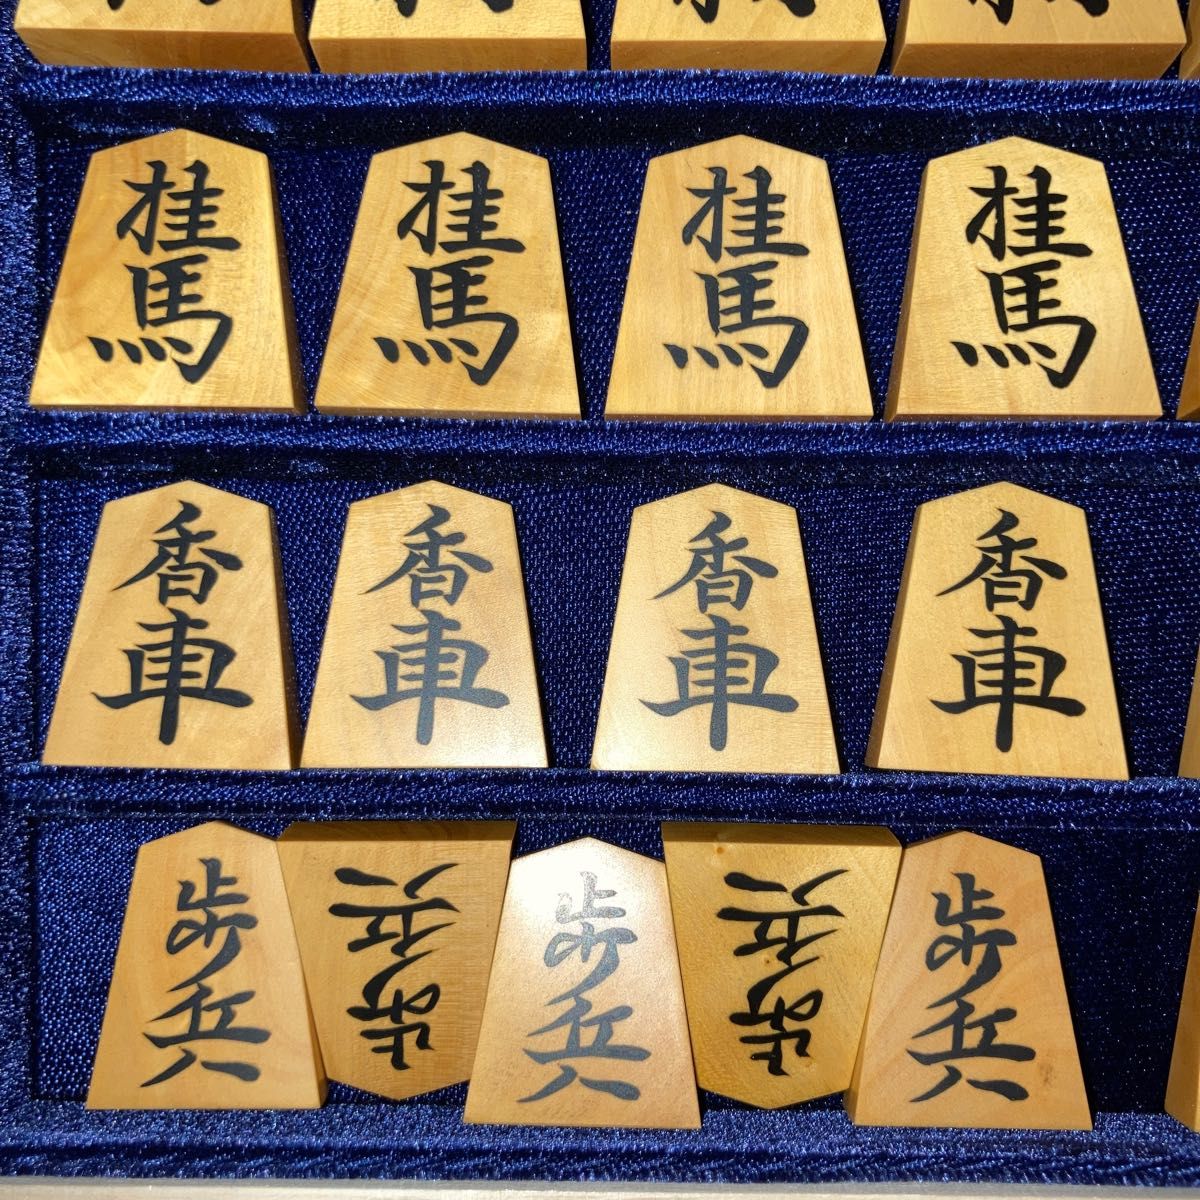 桂馬 桂馬 桂馬 桂馬
香車 香車 香車 香車
歩兵 歩兵 歩兵 歩兵 歩兵